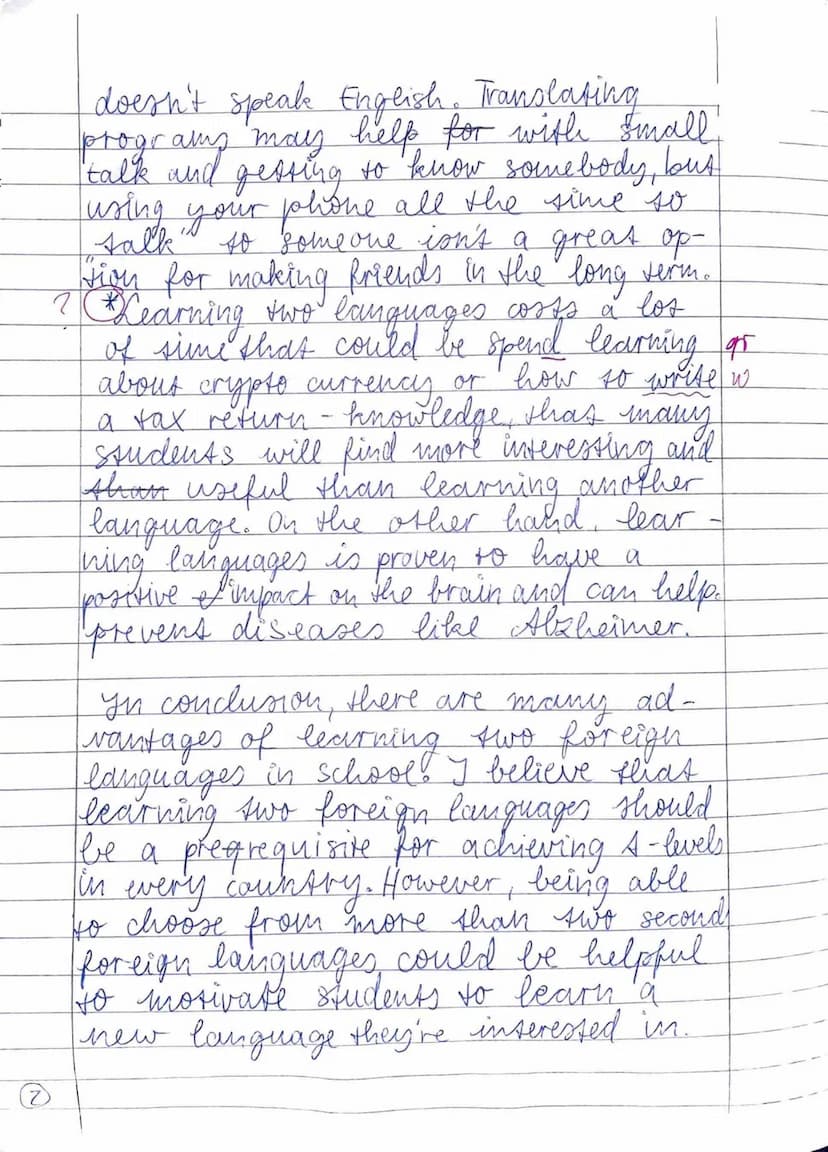 doesn't speak English. Translating
programs may help for with small
talk and getting to know somebody, but
using your phone all the time to
"talk" to someone isn't a great op-
tion for making friends in the long term.
? *Learning two languages costs a lot
of time that could be spend learning gr
about crypto currency or how to write w
a tax return - knowledge, that many
students will find more interesting and
than useful than learning another
language. On the other hand, lear-
ning languages is proven to have a
positive impact on the brain and can help
prevent diseases like Alzheimer.
In conclusion, there are many ad-
vantages of learning two foreign
languages in school. I believe that
learning two foreign languages should
be a prerequisite for achieving A-levels
in every country. However, being able
to choose from more than two second
foreign languages could be helpful
to motivate students to learn a
new language they're interested in.
2